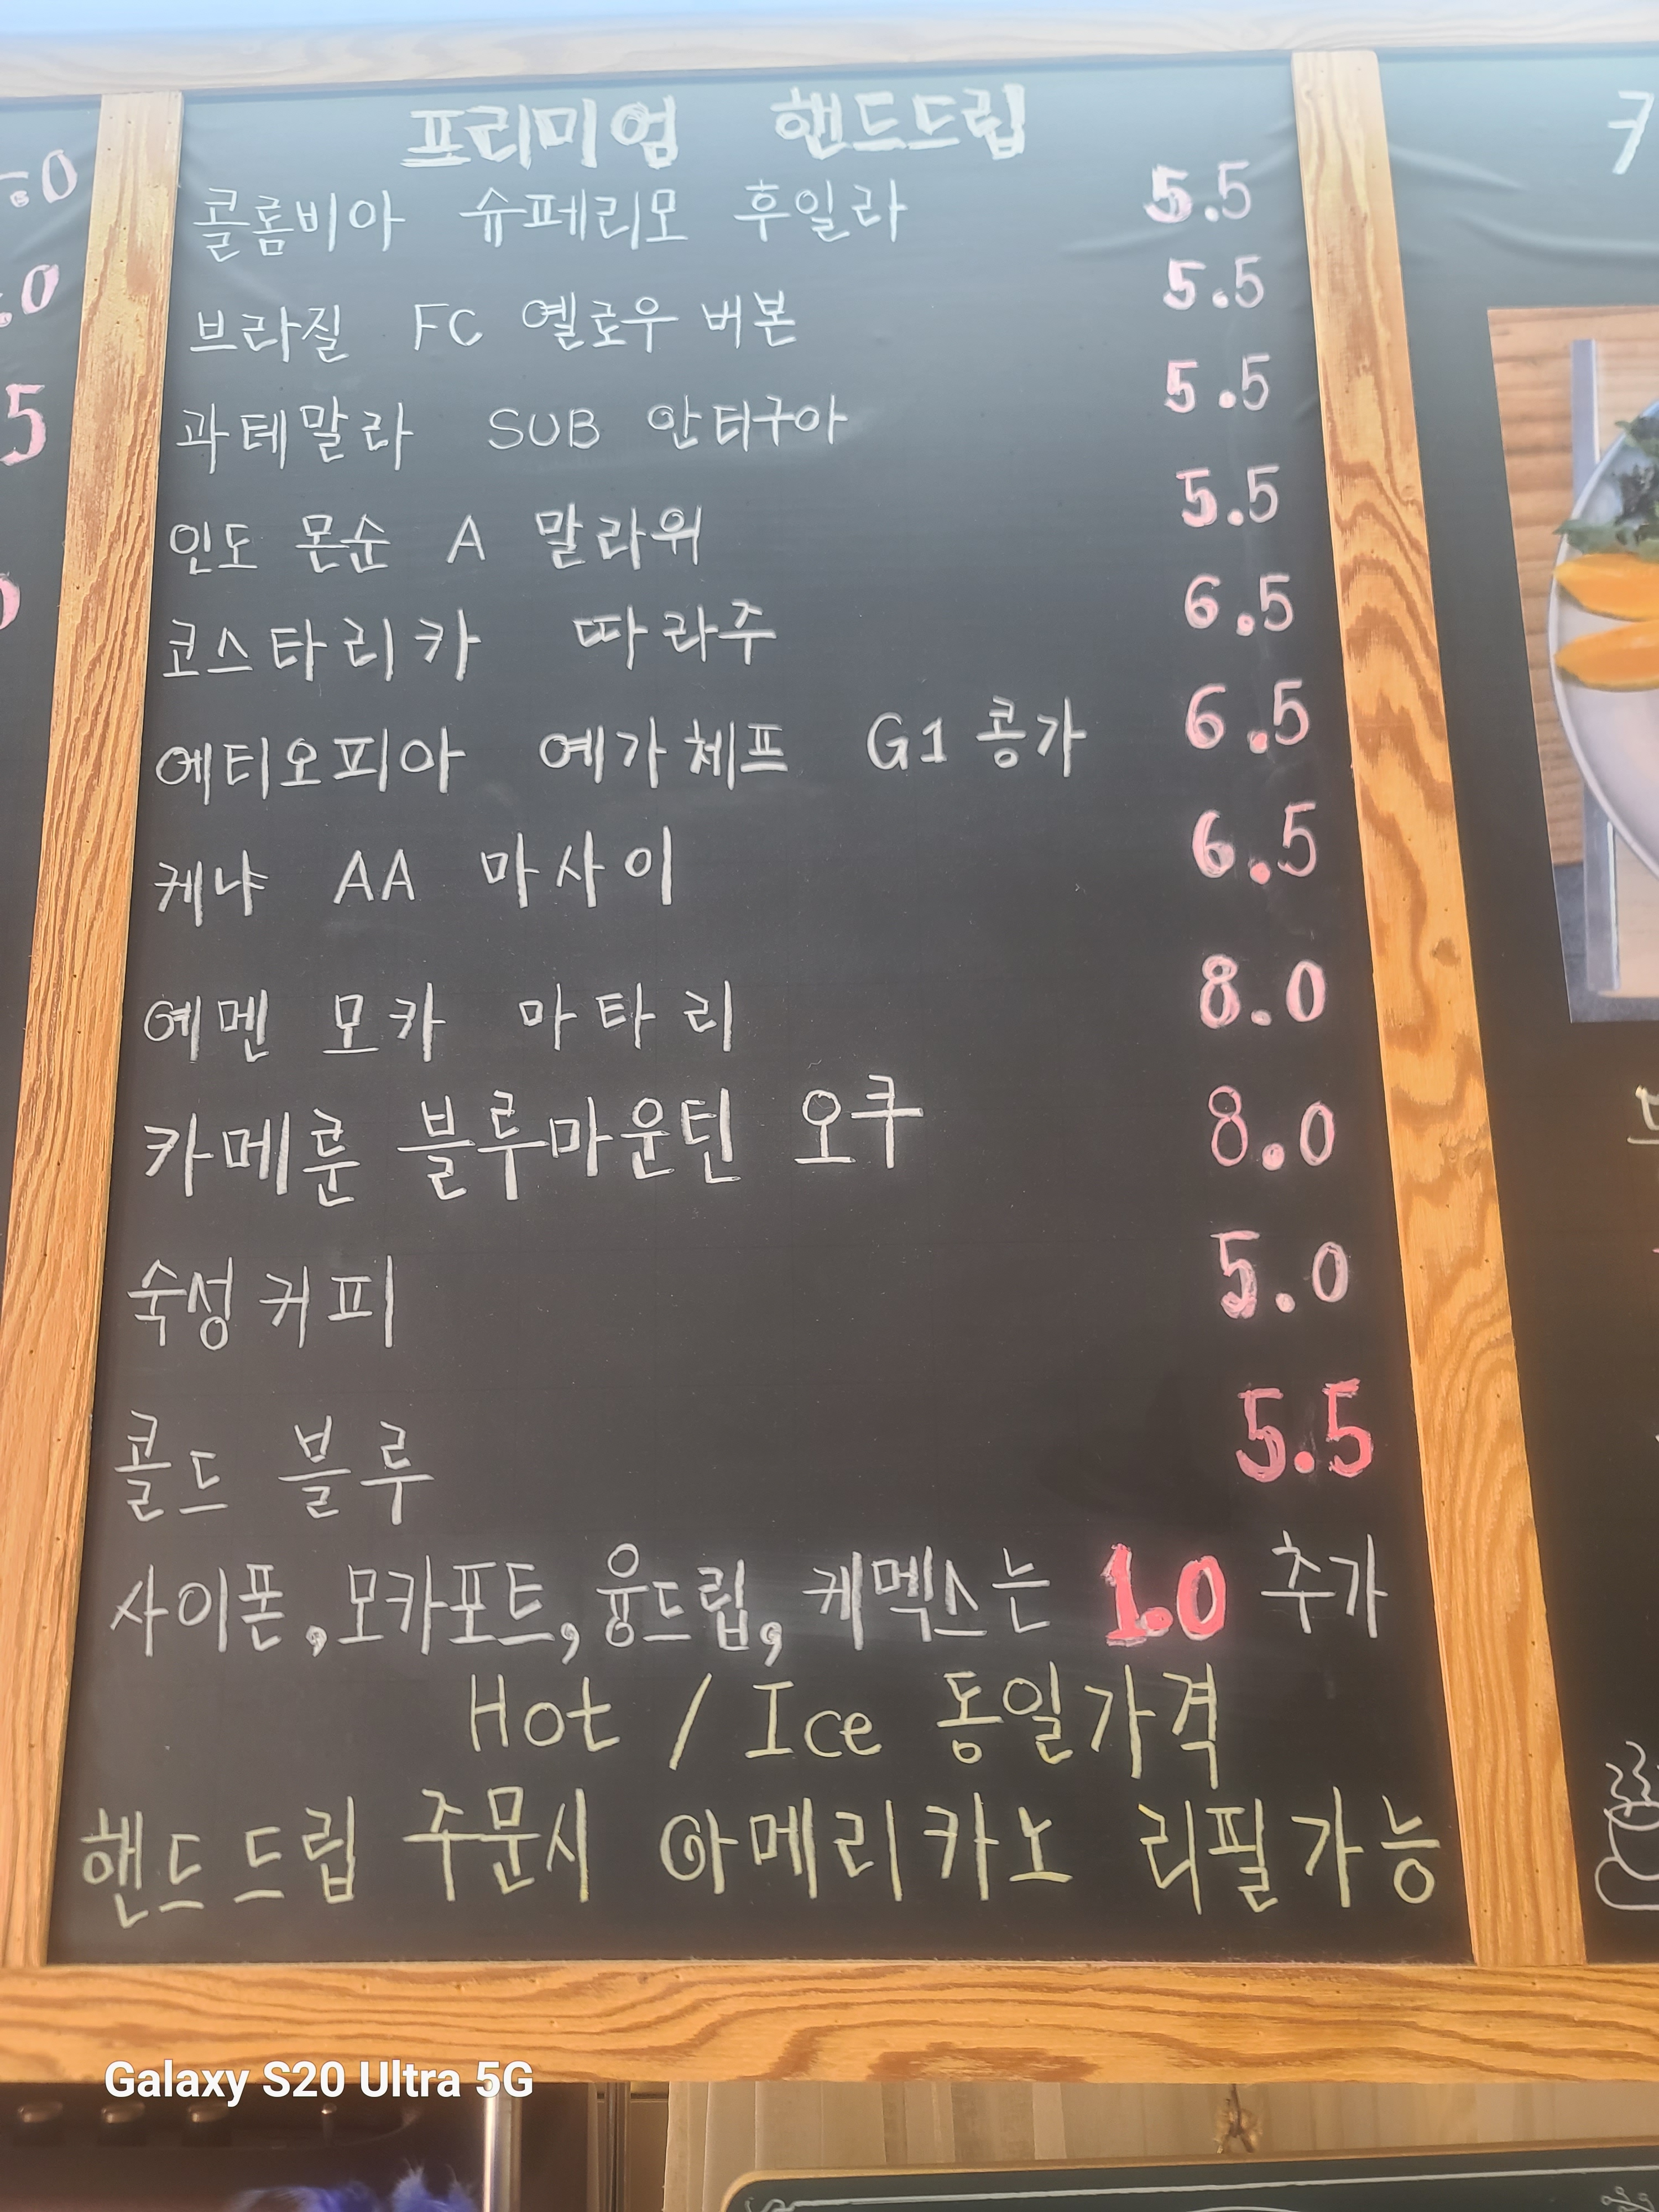 프리미엄 핸드드립
콜롬비아 슈페리모 후일라 5.5
브라질 FC 옐로우 버본 5.5
과테말라 SUB 안티구아 5.5
인도 몬순 A 말라위 5.5
코스타리카 따라주 6.5
에티오피아 예가체프 G1 콩가 6.5
케냐 AA 마사이 6.5
예멘 모카 마타리 8.0
카메룬 블루마운틴 오쿠 8.0
숙성커피 5.0
콜드 블루 5.5
사이폰, 모카포트, 융드립, 케멕스는 1.0 추가
Hot / Ice 동일가격
핸드드립 주문시 아메리카노 리필가능
Galaxy S20 Ultra 5G